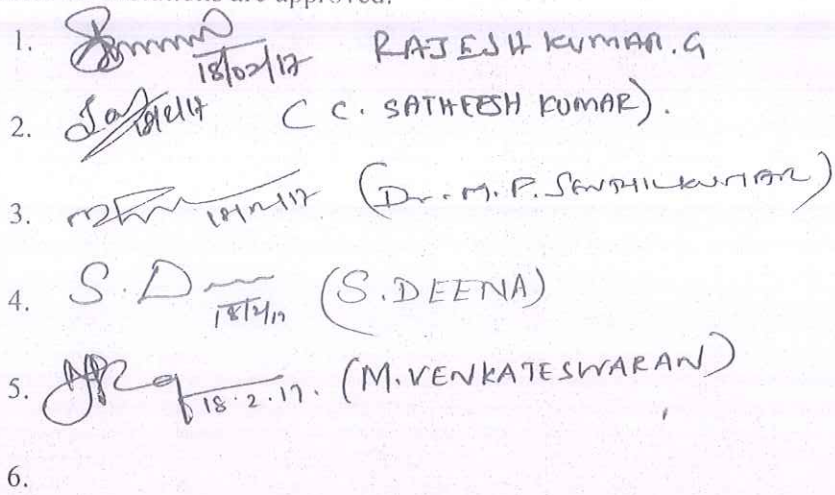 are approved.
1. 18/02/17 RAJESH KUMAR. G
2. 18/2/17 ( C. SATHEESH KUMAR).
3. (Dr. M. P. SENTHILKUMAR)
4. S. D 18/2/17 (S. DEENA)
5. 18.2.17. (M. VENKATESWARAN)
6.